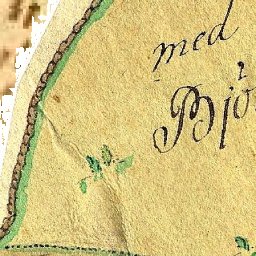 med
Bjö